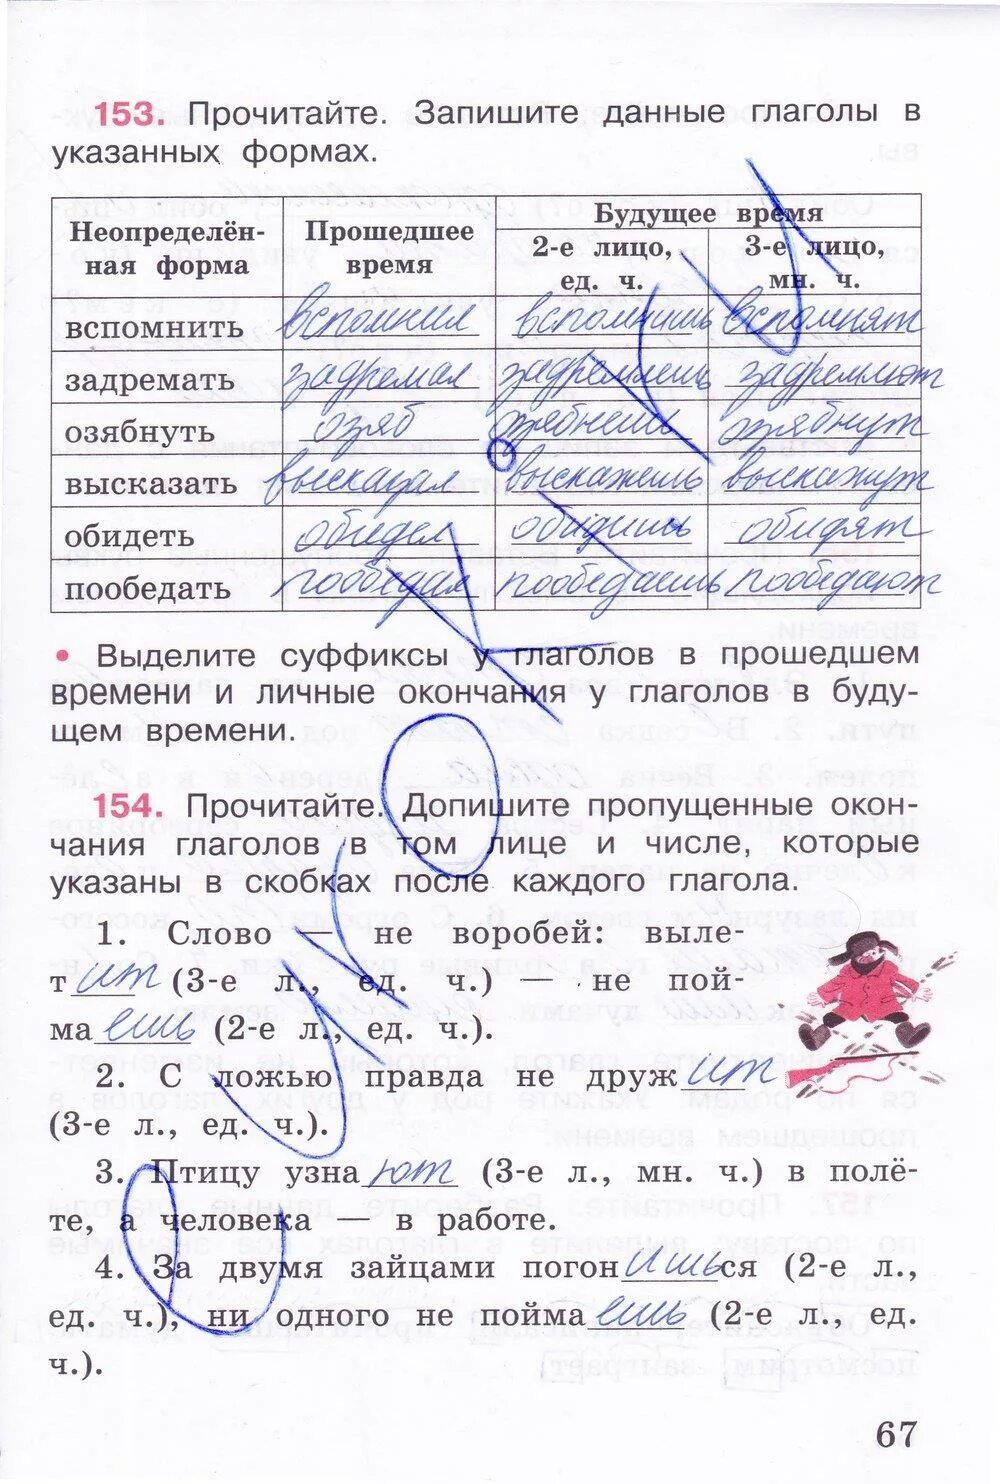 153. Прочитайте. Запишите данные глаголы в
указанных формах.
Неопределён-
ная форма
Прошедшее
время
Будущее время
2-е лицо,
ед. ч.
3-е лицо,
мн. ч.
вспомнить вспомнил вспомнишь вспомнят
задремать задремал задремлешь задремлют
озябнуть озяб озябнешь озябнут
высказать высказал выскажешь выскажут
обидеть обидел обидишь обидят
пообедать пообедал пообедаешь пообедают
• Выделите суффиксы у глаголов в прошедшем
времени и личные окончания у глаголов в буду-
щем времени.
154. Прочитайте. Допишите пропущенные окон-
чания глаголов в том лице и числе, которые
указаны в скобках после каждого глагола.
1. Слово — не воробей: выле-
тит (3-е л., ед. ч.) — не пой-
маешь (2-е л., ед. ч.).
2. С ложью правда не дружит
(3-е л., ед. ч.).
3. Птицу узнают (3-е л., мн. ч.) в полё-
те, а человека — в работе.
4. За двумя зайцами погонишься (2-е л.,
ед. ч.), ни одного не поймаешь (2-е л., ед.
ч.).
67